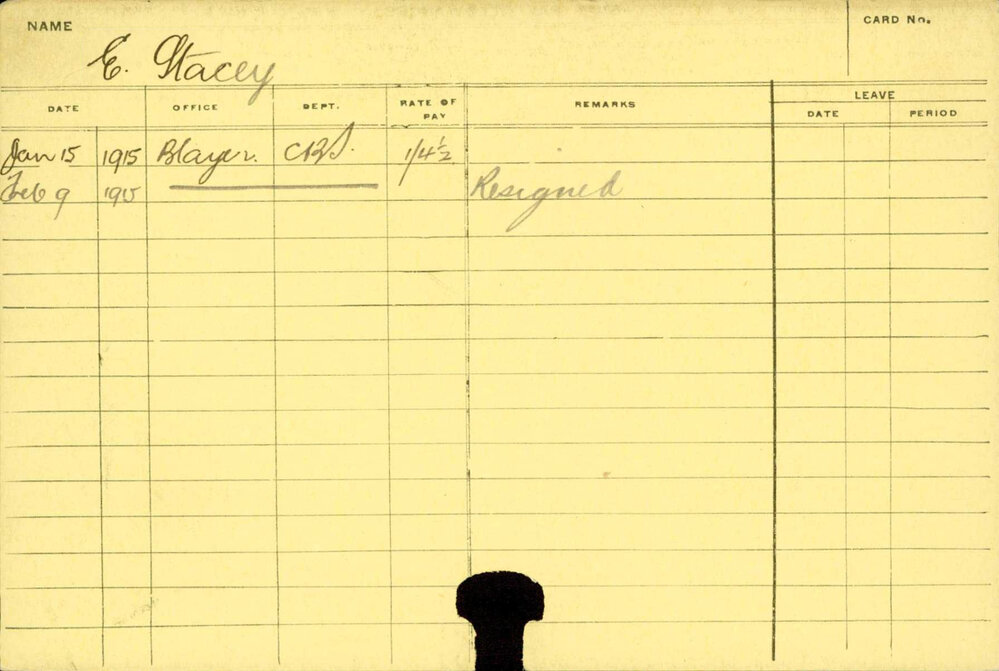 NAME
CARD No.
E. Stacey
DATE OFFICE DEPT. RATE OF PAY REMARKS LEAVE
DATE PERIOD
Jan 15 1915 Blayer. 1/4½
Feb 9 1915 Resigned